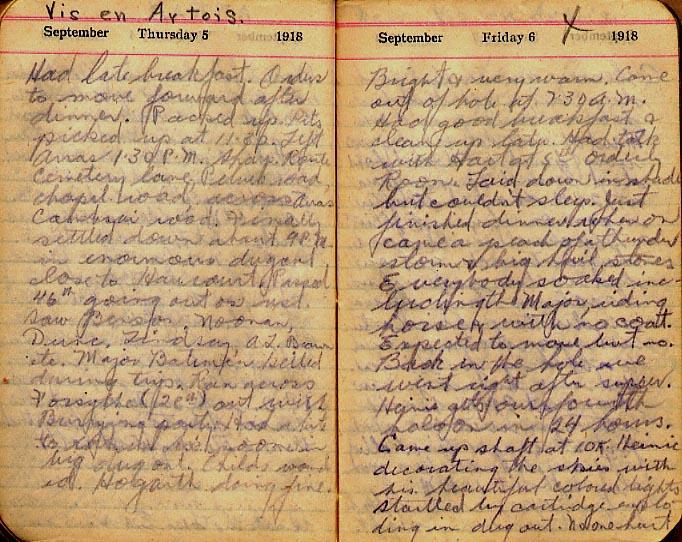 Vis en Artois.
September Thursday 5 1918
Had late breakfast. Orders
to move forward after
dinner. Packed up. Kits
picked up at 11.30. Left
Arras 1.30 P.M. Route
Cemetery lane, road,
chapel road, across Arras
Cambrai road. Finally
settled down about 9 P.M.
in enormous dugout
close to Haucourt. Passed
46th going out on rest.
Saw Benson, Noonan,
Dunc. Lindsay, A.L. Brown
etc. Major killed
during trip. Ran across
Forsythe (12th) out with
Burying party. Had
to in
big dugout. Childs wound
ed. Hogarth doing fine.
September Friday 6 X 1918
Bright & very warm. Came
out of hole at 7.30 A.M.
Had good breakfast &
clean up later. Had talk
with at 5th Orderly
Room. Laid down in shade
but couldn't sleep. Just
finished dinner when on
came a peach of a thunder
storm & big hail stones
Everybody soaked inc-
luding the Major, riding
horse & with no coat.
Expected to move but no.
Back in the hole we
went right after supper.
Heinie gets our fourth
balloon in 24 hours.
Came up shaft at 10K. Heinie
decorating the skies with
his beautiful colored lights
startled by cartridge explo
ding in dug out. No one hurt